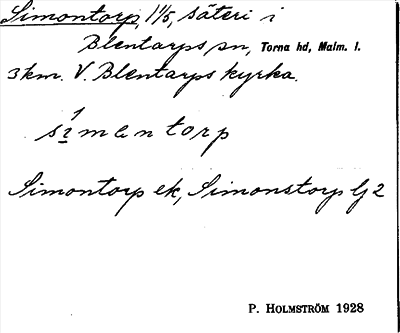 Simontorp, 1 1/5, säteri i
Blentarps sn, Torna hd, Malm. l.
3 km. V. Blentarps kyrka.
Simontorp ek, Simonstorp lj 2
P. HOLMSTRÖM 1928